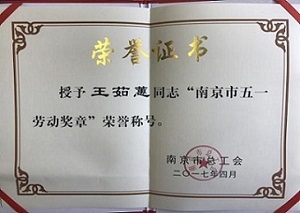 荣誉证书
授予王茹蕙同志“南京市五一
劳动奖章”荣誉称号。
南京市总工会
二〇一七年四月